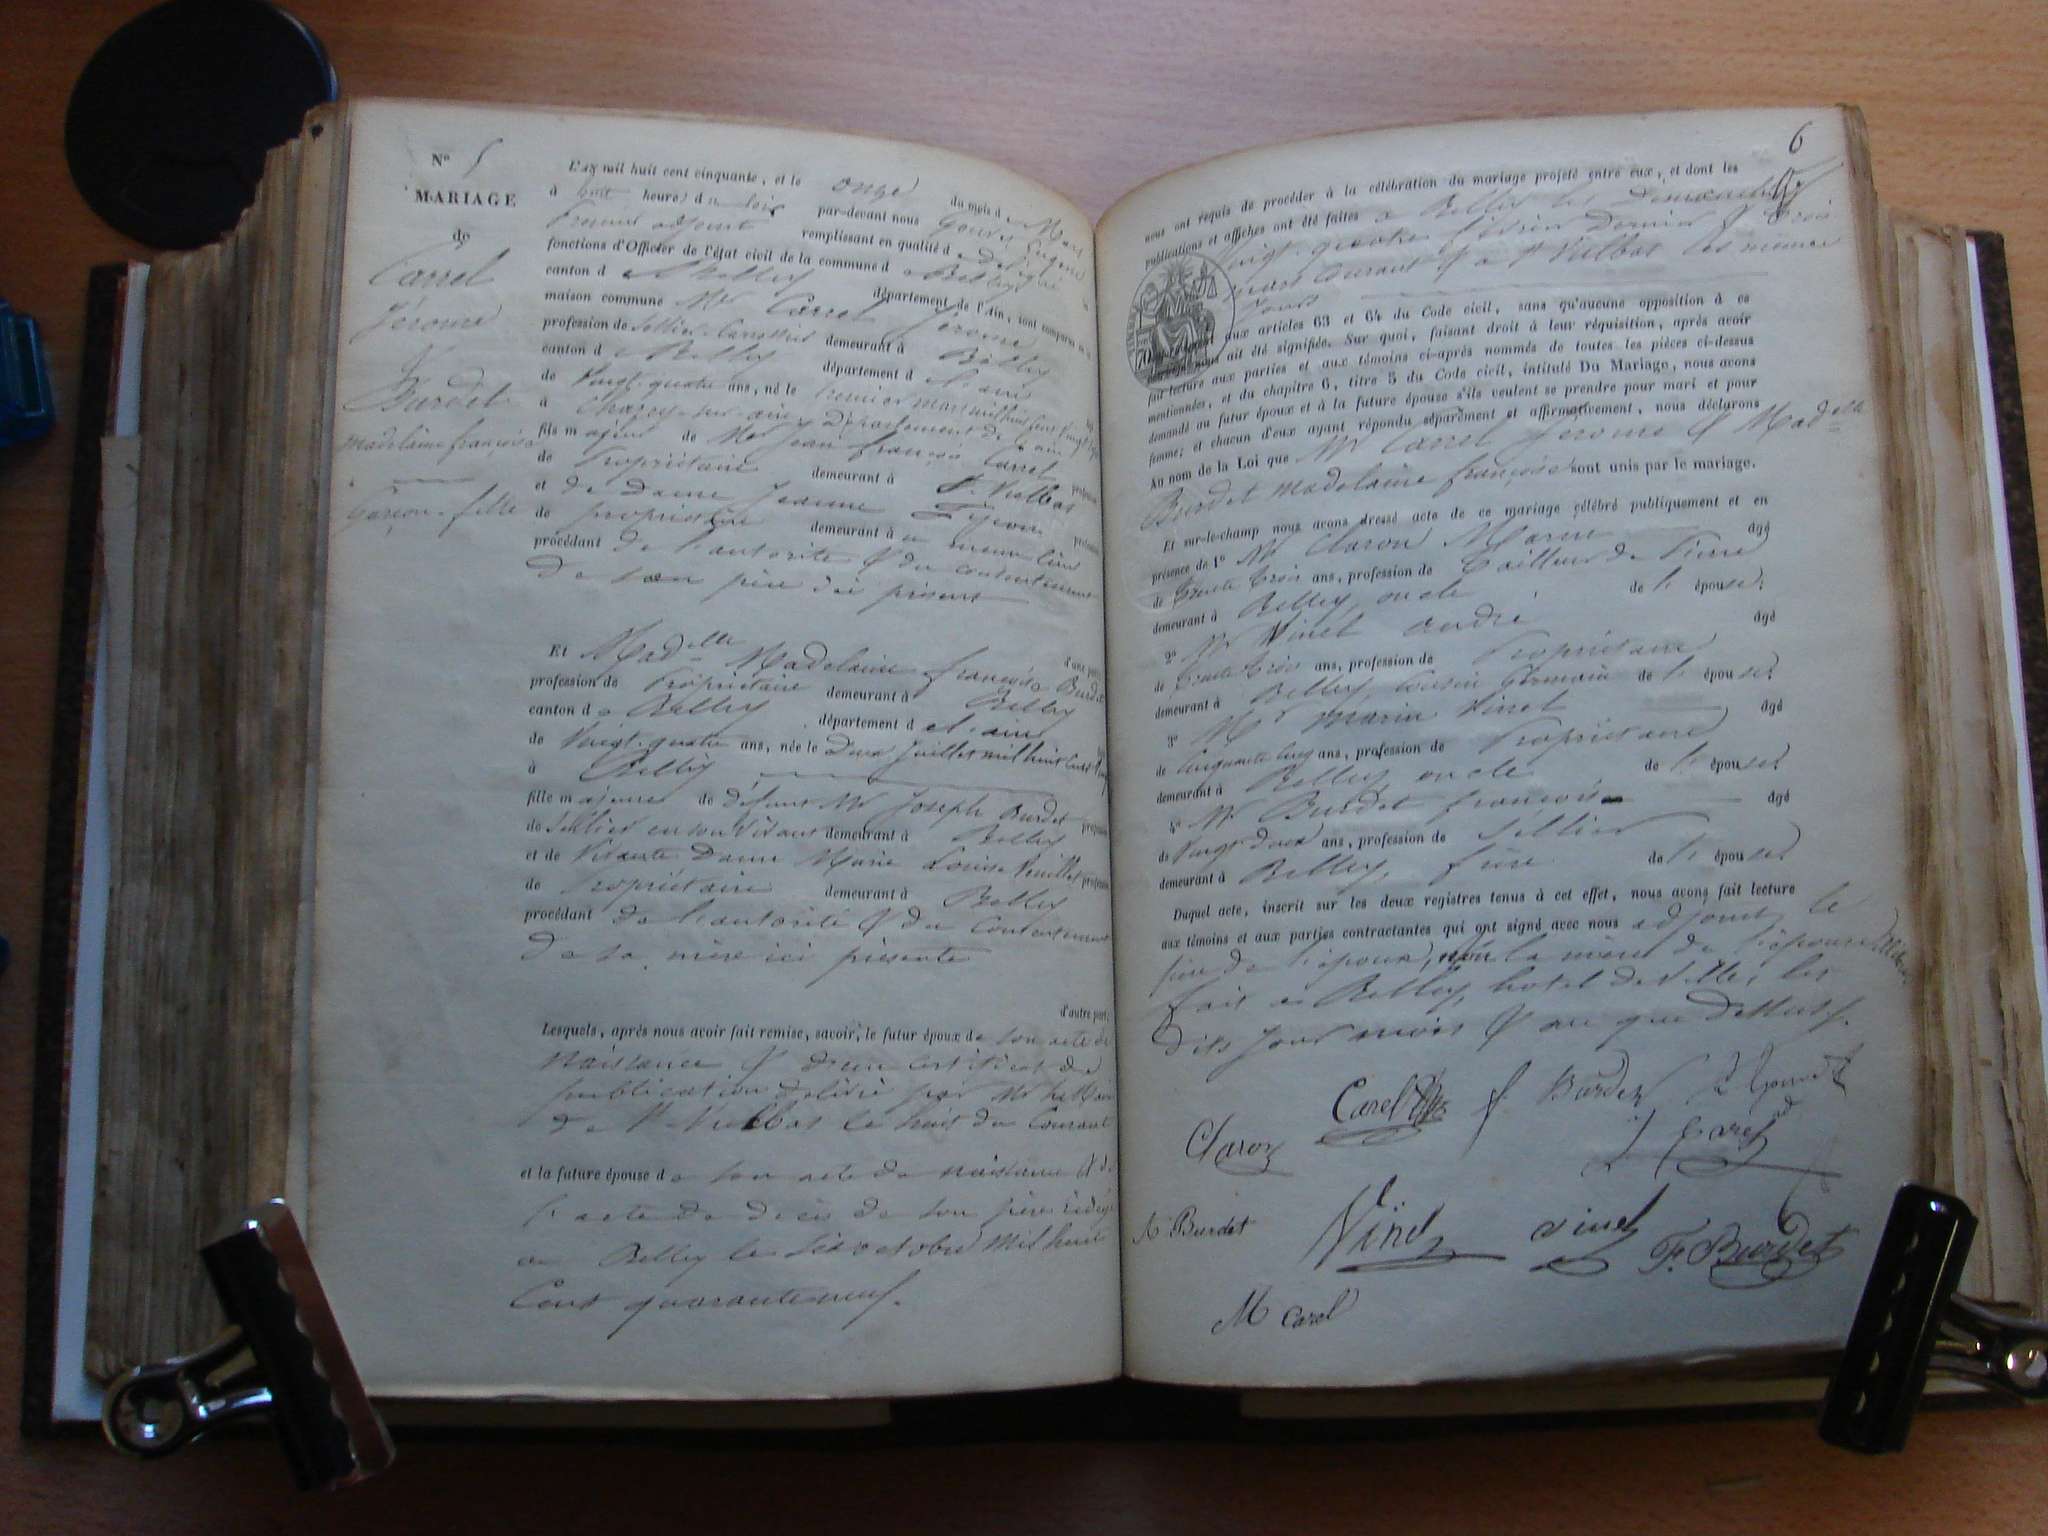 N° 5
MARIAGE
de
Carrel
Jérome
&
Burdet
Madelaine françoise
Garçon - fille
L'an mil huit cent cinquante, et le onze du mois de Mars
à huit heures du soir par-devant nous Eugène
Premier adjoint remplissant en qualité de délégué
fonctions d'Officier de l'état civil de la commune de Belley
canton de Belley département de l'Ain, sont comparus en la
maison commune Mr Carrel Jérome
profession de Sellier demeurant à Belley
canton de Belley département de l'ain
de Vingt-quatre ans, né le premier mars mil huit cent vingt
à Chazey-sur-ain, Département de l'ain
fils majeur de Mr Jean françois Carrel
de Propriétaire demeurant à St Vulbas
et de Dame Jeanne
de propriétaire demeurant au même lieu
procédant de l'autorité & du consentement
de son père ici présent
d'une part;
Et Madelle Madelaine françoise Burdet
profession de Propriétaire demeurant à Belley
canton de Belley département de l'ain
de Vingt-quatre ans, née le Deux Juillet mil huit cent vingt
à Belley
fille majeure de défunt Mr Joseph Burdet
de Sellier en son vivant demeurant à Belley
et de vivante Dame Marie Louise
de Propriétaire demeurant à Belley
procédant de l'autorité & du Consentement
de sa mère ici présente
d'autre part;
Lesquels, après nous avoir fait remise, savoir, le futur époux de son acte de
naissance & d'un certificat de
publication délivré par Mr le Maire
de St Vulbas le huit du Courant
et la future épouse de son acte de naissance & de
l'acte de décès de son père rédigé
à Belley le six octobre mil huit
Cent quarante neuf.
6
nous ont requis de procéder à la célébration du mariage projeté entre eux, et dont les
publications et affiches ont été faites à Belley les Dimanches
vingt-quatre février Dernier & trois
mars Courant & à St Vulbas les mêmes
jours
aux articles 63 et 64 du Code civil, sans qu'aucune opposition à ce
nous ait été signifiée. Sur quoi, faisant droit à leur réquisition, après avoir
fait lecture aux parties et aux témoins ci-après nommés de toutes les pièces ci-dessus
mentionnées, et du chapitre 6, titre 5 du Code civil, intitulé Du Mariage, nous avons
demandé au futur époux et à la future épouse s'ils veulent se prendre pour mari et pour
femme; et chacun d'eux ayant répondu séparément et affirmativement, nous déclarons
Au nom de la Loi que Mr Carrel Jérome & Madelle
Burdet Madelaine françoise sont unis par le mariage.
Et sur-le-champ nous avons dressé acte de ce mariage célébré publiquement et en
présence de 1° Mr Claron Marin âgé
de trente trois ans, profession de Tailleur de Pierre
demeurant à Belley, oncle de l'épouse;
2° Mr Vinet andré âgé
de trente trois ans, profession de Propriétaire
demeurant à Belley, Cousin Germain de l'épouse;
3° Mr Marin Vinet âgé
de Cinquante cinq ans, profession de Propriétaire
demeurant à Belley, oncle de l'épouse;
4° Mr Burdet françois âgé
de Vingt deux ans, profession de Sellier
demeurant à Belley, frère de l'épouse;
Duquel acte, inscrit sur les deux registres tenus à cet effet, nous avons fait lecture
aux témoins et aux parties contractantes qui ont signé avec nous adjoint, le
père de l'époux, non la mère de l'épouse
fait à Belley, hotel de Ville, les
dits jour mois & an que Dessus.
Claron
Carel
f Burdet
Carel
M Burdet
Vinet
Vinet
F. Burdet
M Carel